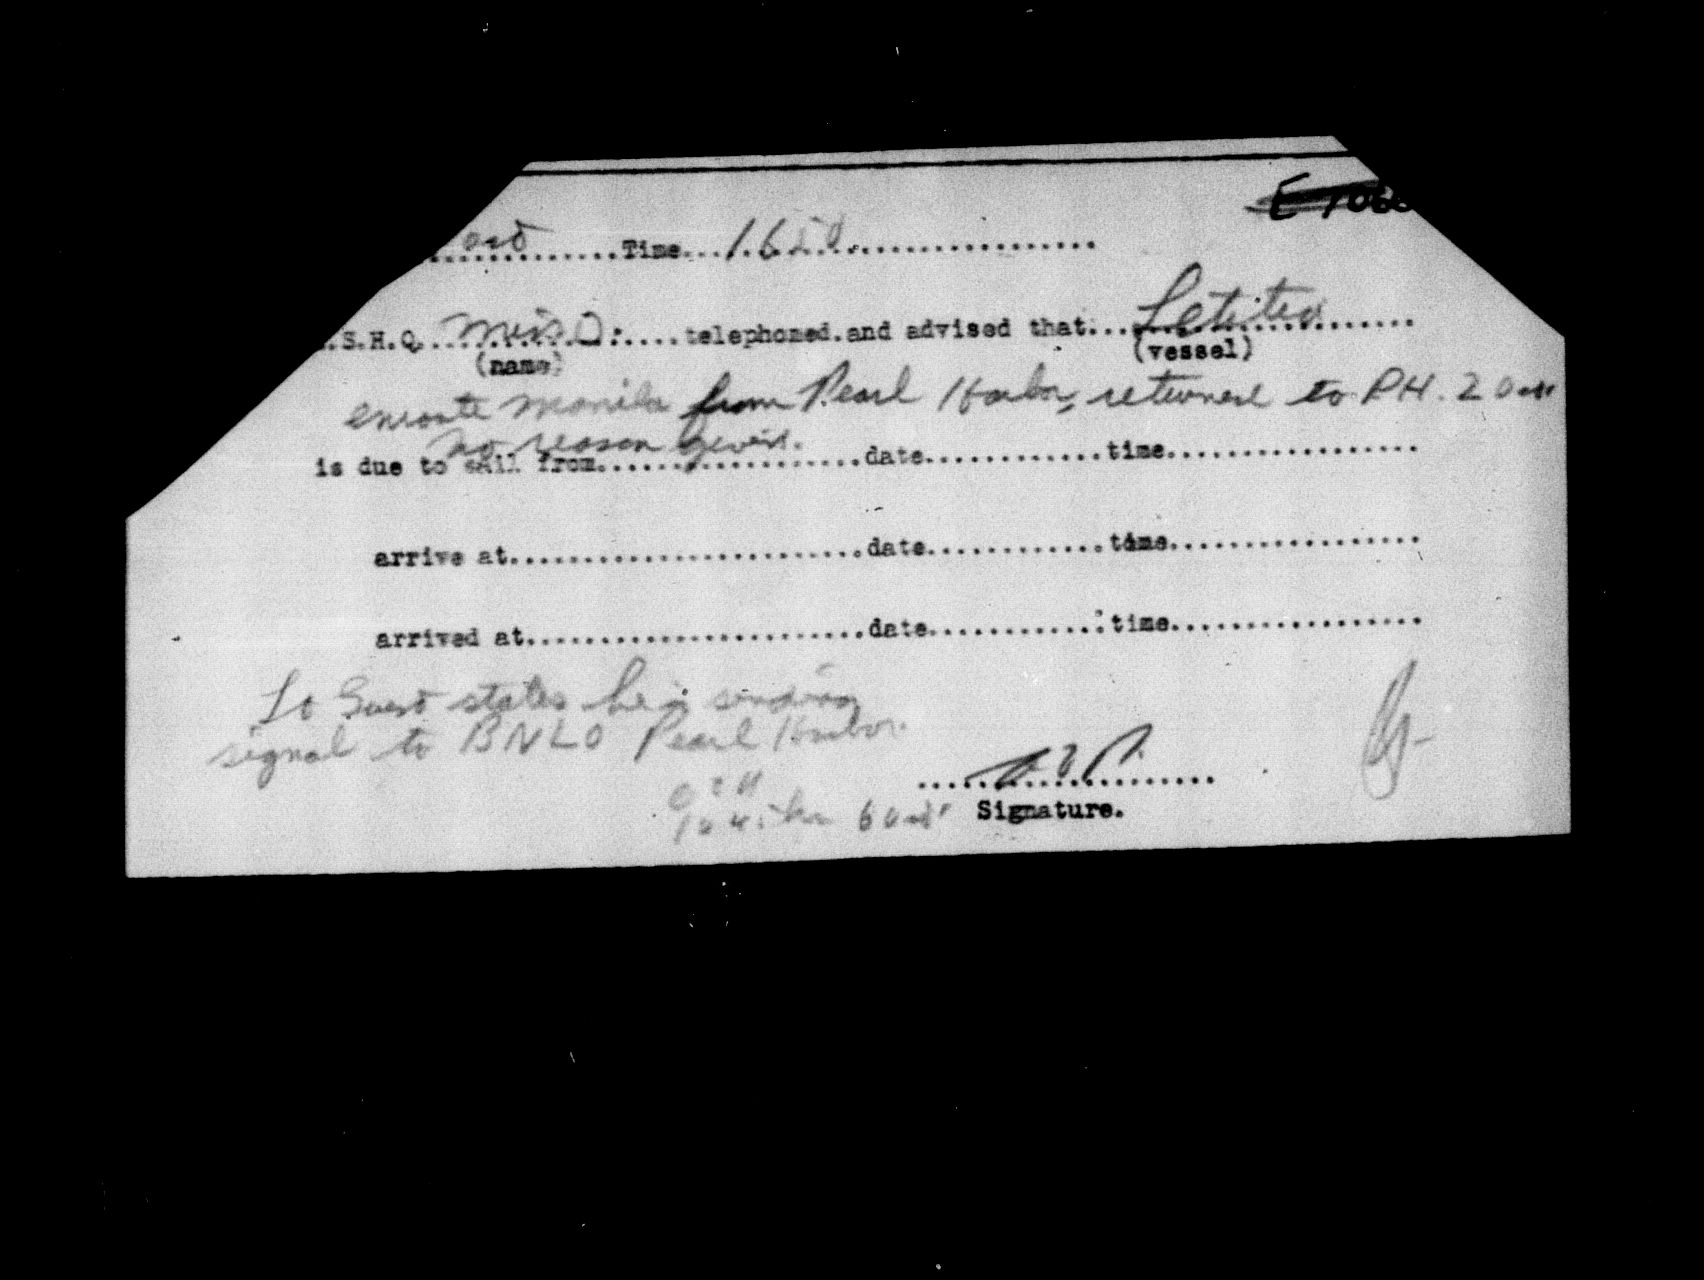 E 106
Oct ............Time...1650...................
.S.H.Q..........:....telephoned.and advised that...Letitia......
(name) (vessel)
enroute Manila from Pearl Harbor, returned to P.H. 2 Oct
no reason given.
is due to sail from..................date............time.................
arrive at........................date............time.................
arrived at.......................date............time.................
Lt Guest states he is sending
signal to BNLO Pearl Harbor.
....................
6 Oct
Signature.